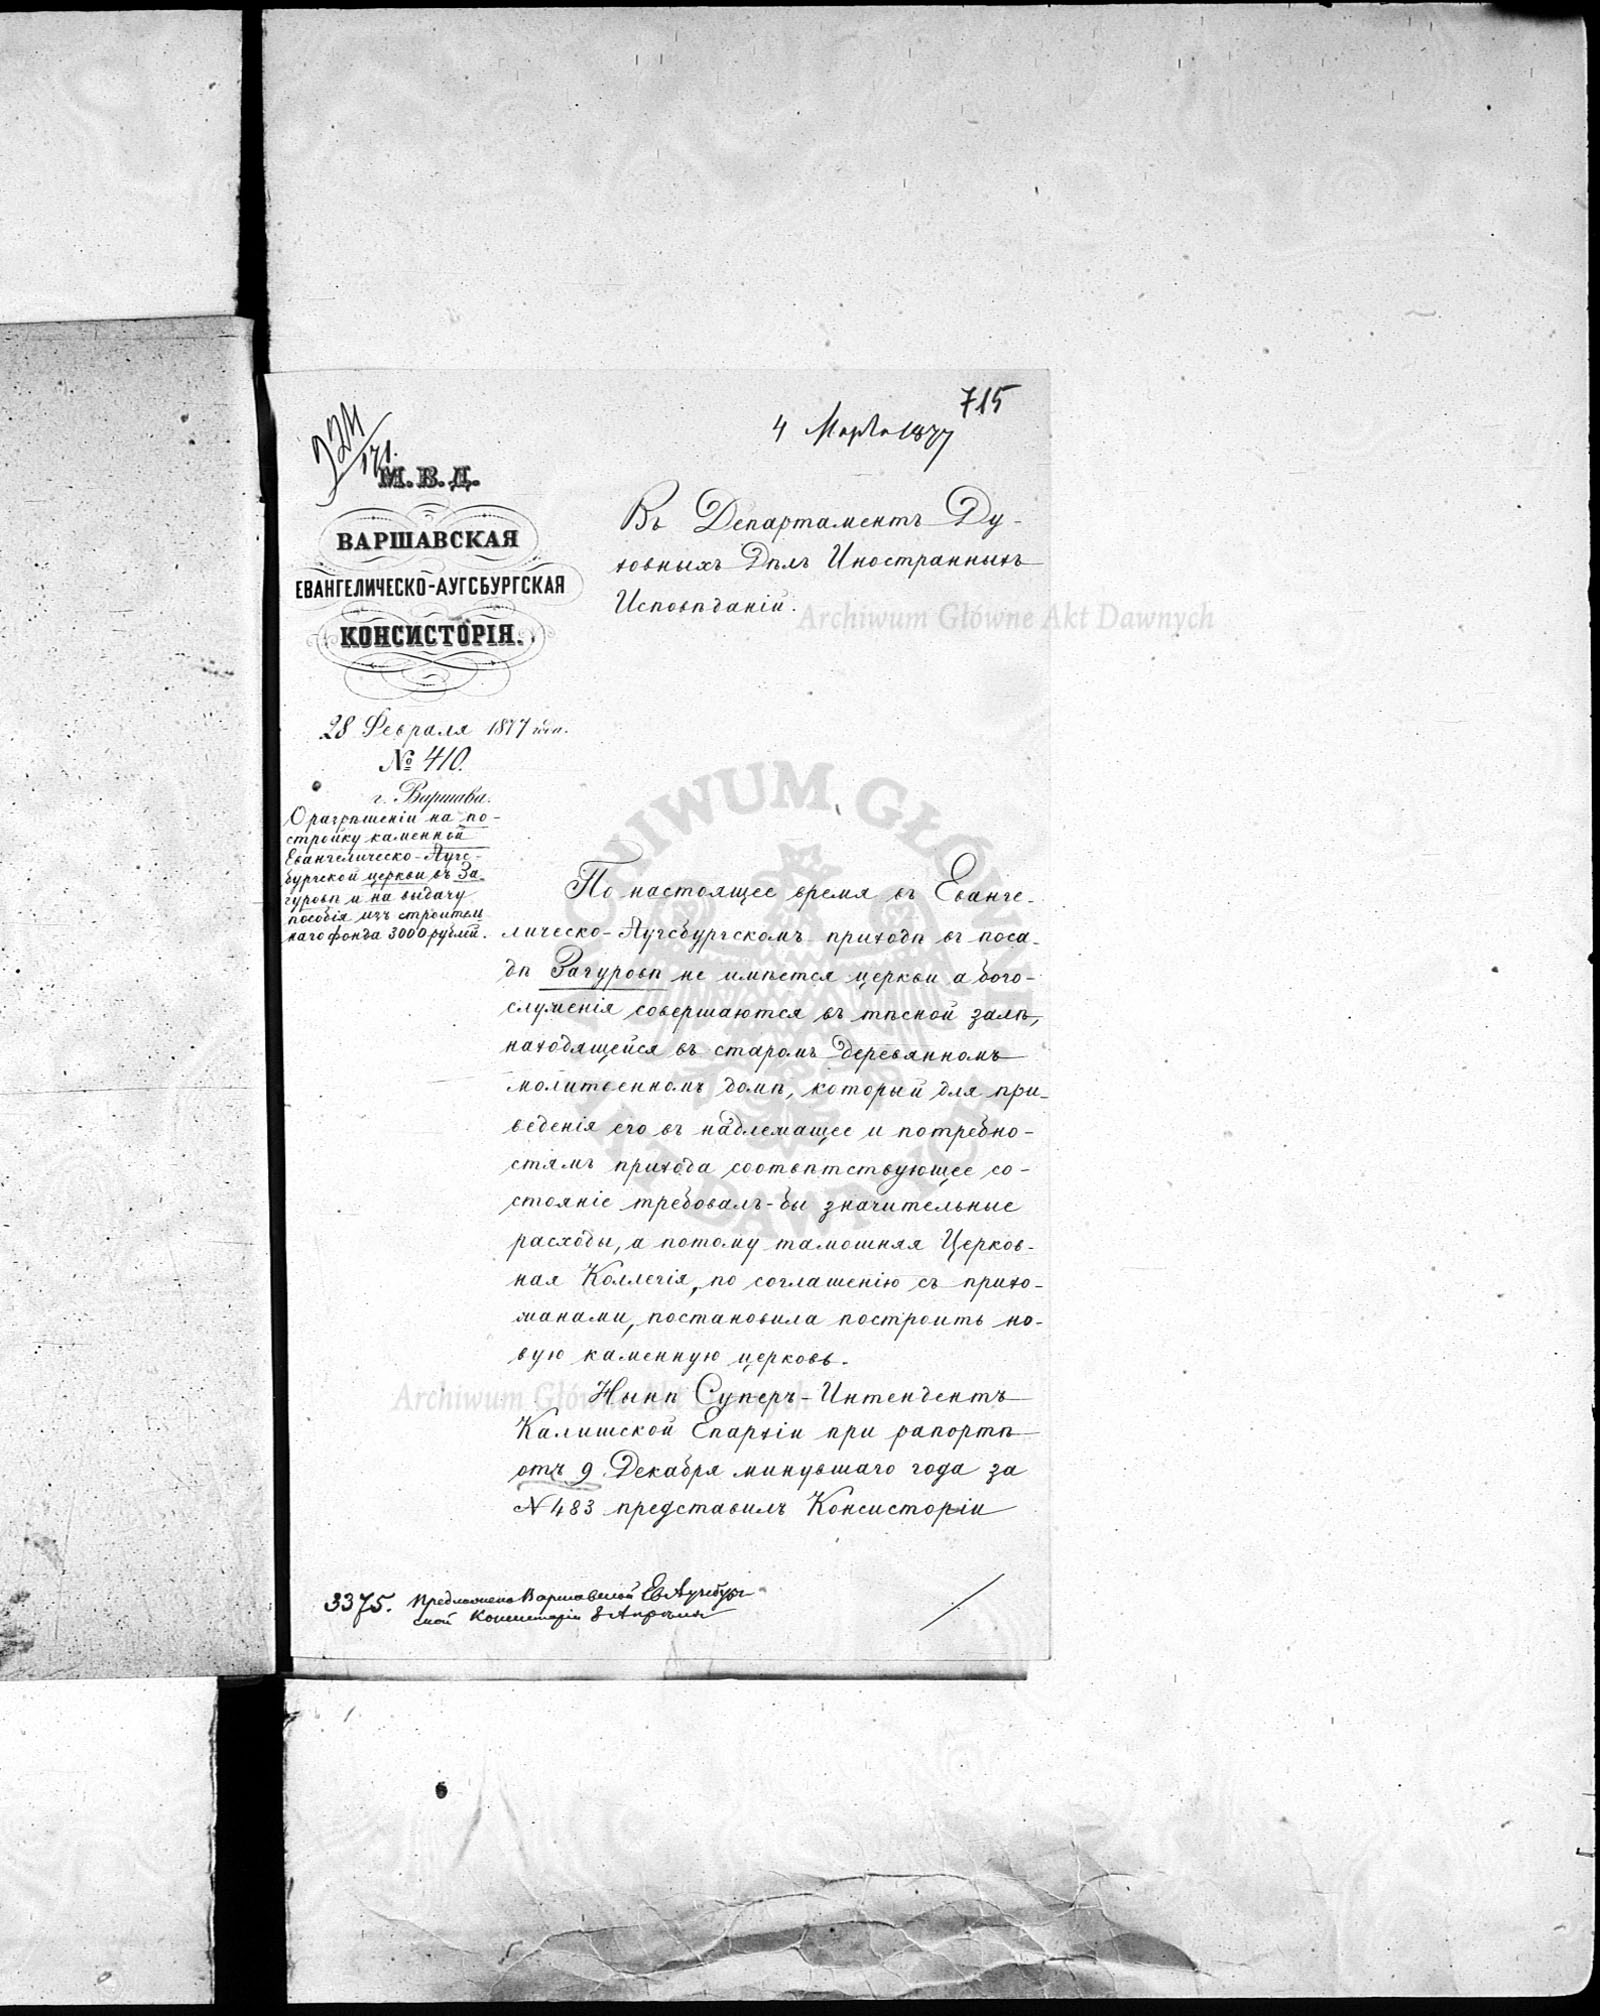 715
4 Марта 1877
М. В. Д.
ВАРШАВСКАЯ
ЕВАНГЕЛИЧЕСКО-АУГСБУРГСКАЯ
КОНСИСТОРІЯ.
28 Февраля 1877 года.
№ 410.
г. Варшава.
О разрѣшеніи на по-
стройку каменной
Евангелическо-Аугс-
бургской церкви въ За-
гуровѣ и на выдачу
пособія изъ строитель
наго фонда 3000 рублей.
Въ Департаментъ Ду-
ховныхъ Дѣлъ Иностранныхъ
Исповѣданій.
Archiwum Główne Akt Dawnych
По настоящее время въ Еванге-
лическо-Аугсбургскомъ приходѣ въ поса-
дѣ Загуровѣ не имѣется церкви а бого-
служенія совершаются въ тѣсной залѣ,
находящейся въ старомъ деревянномъ
молитвенномъ домѣ, который для при-
веденія его въ надлежащее и потребно-
стямъ прихода соотвѣтствующее со-
стояніе требовалъ-бы значительные
расходы, а потому тамошняя Церков-
ная Коллегія, по соглашенію съ прихо-
жанами, постановила построить но-
вую каменную церковь.
Archiwum Główne Akt Dawnych
Нынѣ Суперъ-Интендентъ
Калишской Епархіи при рапортѣ
отъ 9 Декабря минувшаго года за
N 483 представилъ Консисторіи
3375. Предложено Варшавской Ев Аугсбург
ской Консисторіи 8 Апрѣля